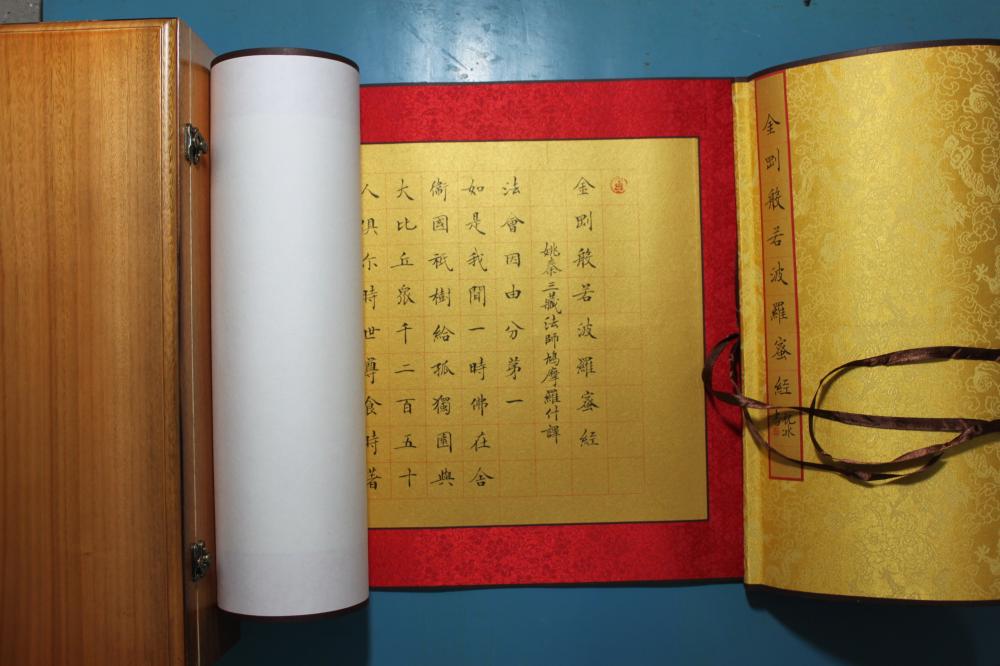 金剛般若波羅蜜經
金剛般若波羅蜜經
姚秦三藏法師鳩摩羅什譯
法會因由分第一
如是我聞一時佛在舍
衛國祇樹給孤獨園與
大比丘眾千二百五十
人俱尒時世尊食時著